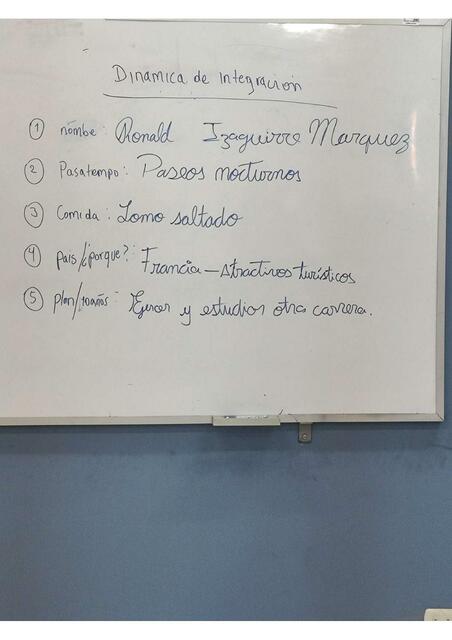 Dinamica de integración
① nombe: Ronald Izaguirre Marquez
② Pasatempo: Paseos nocturnos
③ Comida: Lomo saltado
④ pais/¿porque?: Francia - Atractivos turísticos
⑤ plan/10años: Ejercer y estudios otra carrera.